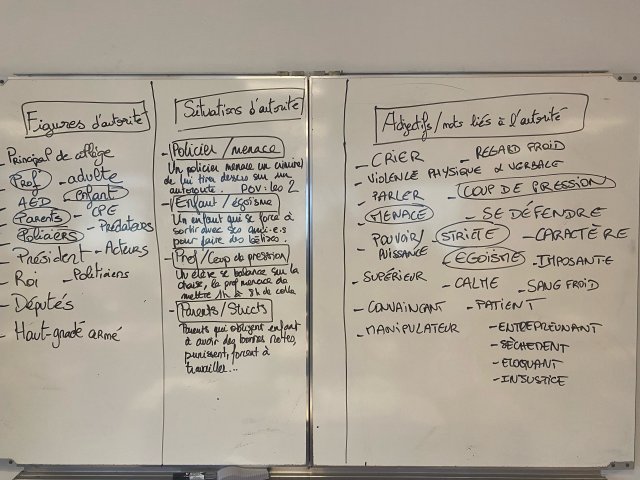 Figures d'autorité
- Principal de collège
- Prof
- adulte
- AED
- enfant
- Parents
- CPE
- Policiers
- Prédateurs
- Président
- Acteurs
- Roi
- Politiciens
- Députés
- Haut-gradé armé
Situations d'autorité
- Policier / menace
Un policier menace un criminel
de lui tirer dessus sur un
autoroute. POV: les 2
- Enfant / égoïsme
Un enfant qui se force à
sortir avec ses ami.e.s
pour faire des bêtises.
- Prof / Coup de pression
Un élève se balance sur la
chaise, le prof menace de
mettre 1h à 8h de colle
- Parents / Stricts
Parents qui obligent enfant
à avoir des bonnes notes,
punissent, forcent à
travailler...
Adjectifs / mots liés à l'autorité
- CRIER
- REGARD FROID
- VIOLENCE PHYSIQUE & VERBALE
- PARLER
- COUP DE PRESSION
- MENACE
- SE DÉFENDRE
- POUVOIR/
PUISSANCE
- STRICTE
- CARACTÈRE
- EGOÏSME
- IMPOSANT·E
- SUPÉRIEUR
- CALME
- SANG FROID
- CONVAINCANT
- PATIENT
- MANIPULATEUR
- ENTREPRENNANT
- SÈCHEMENT
- ELOQUANT
- INJUSTICE